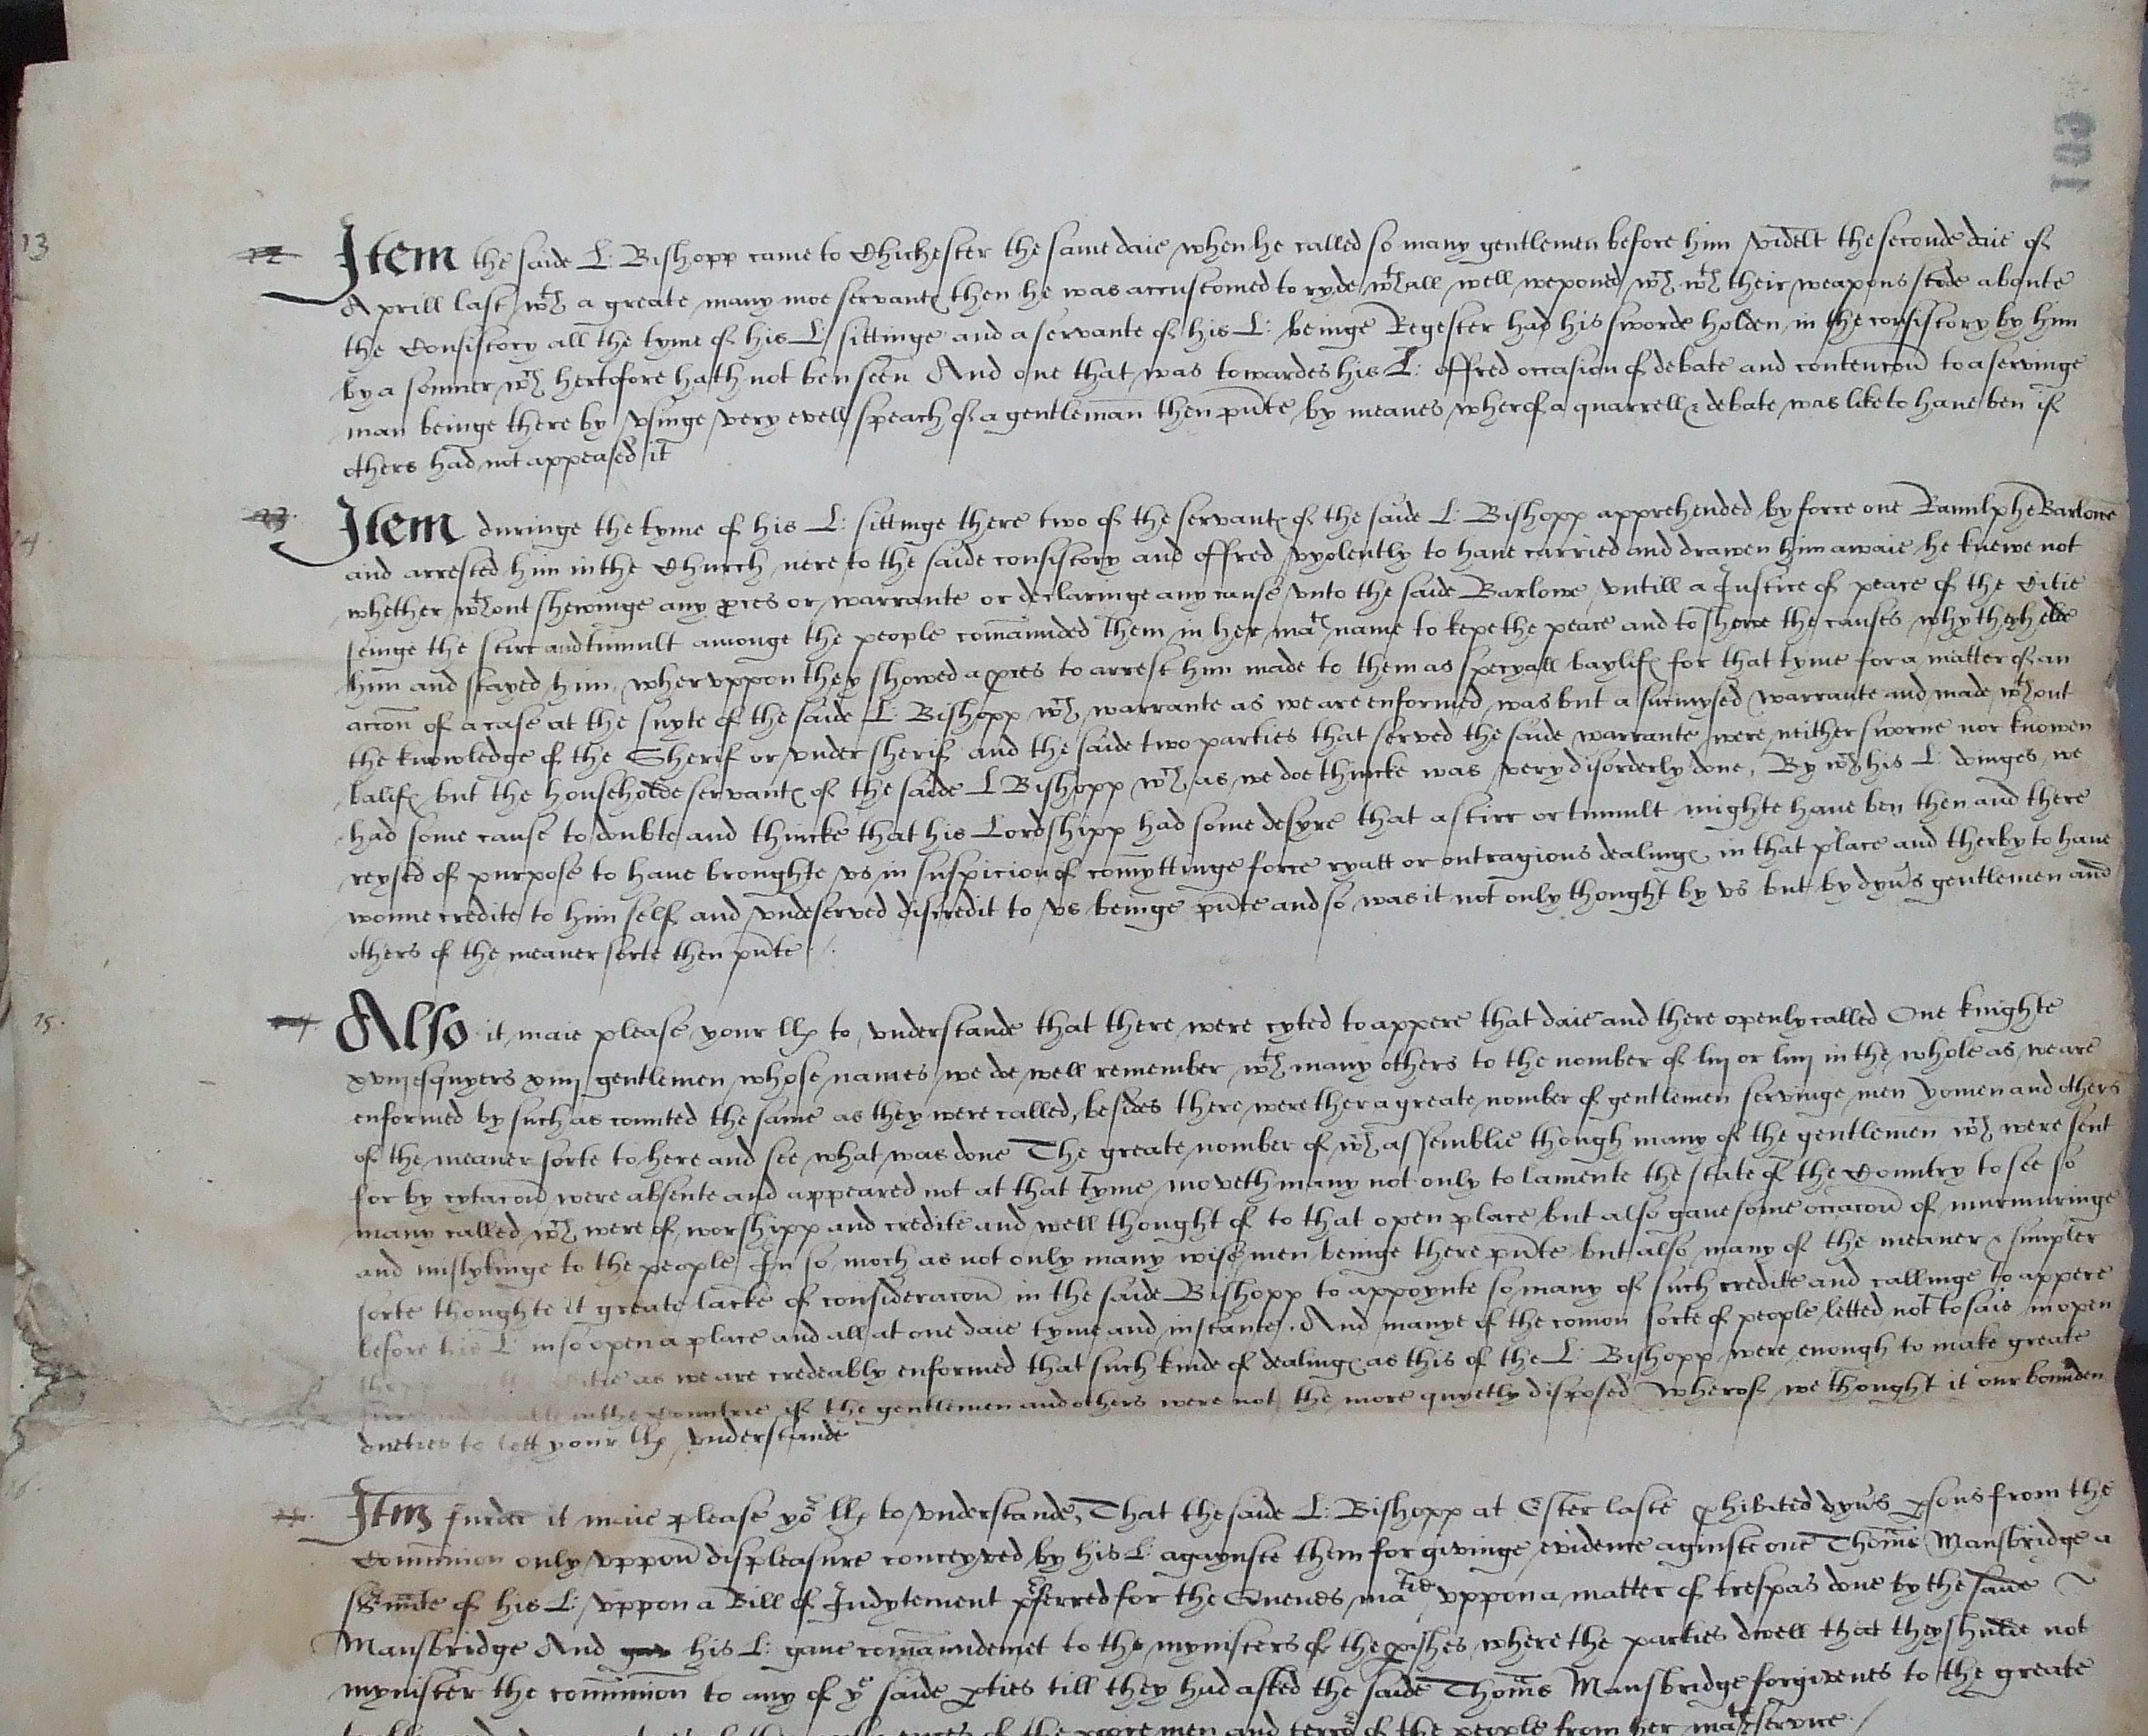 103
13 22 Item the saide L: Bishopp came to Chichester the same daie when he called so many gentlemen before him videlt the seconde daie of
Aprill last wth a greate many moe servantes then he was accustomed to ryde wthall well weponed wch wth their weapons stode aboute
the Consistory all the tyme of his L: sittinge and a servante of his L: beinge Regester had his sworde holden in the consistory by him
by a somner wch hertofore hath not ben seen And one that was towardes his L: offred occasion of debate and contencon to a servinge
man beinge there by vsinge very evell speach of a gentleman then pnte by meanes wherof a quarrell & debate was like to haue ben if
others had not appeased it
14. 23. Item duringe the tyme of his L: sittinge there two of the servantes of the saide L: Bishopp apprehended by force one Ranulphe Barlowe
and arrested him in the Church nere to the saide consistory and offred vyolently to haue carried and drawen him awaie he knewe not
whether wthout shewinge any pces or warrante or declaringe any cause vnto the saide Barlowe vntill a Justice of peace of the Citie
seinge the stirr and tumult amonge the people comaunded them in her mates name to kepe the peace and to shewe the causes why they helde
him and stayed him, whervppon they showed a pces to arrest him made to them as specyall baylifes for that tyme for a matter of an
accon of a case at the suyte of the saide L: Bishopp wch warrante as we are enformed was but a surmysed warrante and made wthout
the knowledge of the Sherif or vndersherif and the saide two parties that served the saide warrante were neither sworne nor knowen
balifes but the housholde servantes of the saide L Bishopp wch as we doe thincke was very disorderly done, By wch his L: doinges we
had some cause to doubte and thincke that his Lordshipp had some desyre that a stirr or tumult mighte haue ben then and there
reysed of purpose to haue broughte vs in suspicion of comyttinge force ryatt or outragious dealinges in that place and therby to haue
wonne credite to him self and vndeserved discredit to vs beinge pnte and so was it not only thought by vs but by dyus gentlemen and
others of the meaner sorte then pnte /.
15. 24 Also it maie please your llps to vnderstande that there were cyted to appere that daie and there openly called One knighte
xviij esquyers xiiij gentlemen whose names we doe well remember wth many others to the nomber of liij or liiij in the whole as we are
enformed by such as counted the same as they were called, besides there were ther a greate nomber of gentlemen servinge men yomen and others
of the meaner sorte to here and see what was done The greate nomber of wch assemblie though many of the gentlemen wch were sent
for by cytacon were absente and appeared not at that tyme moveth many not only to lamente the state of the Country to see so
many called wch were of worshipp and credite and well thought of to that open place but also gaue some occacon of murmuringe
and mislykinge to the people In so moch as not only many wise men beinge there pnte but also many of the meaner & simpler
sorte thoughte it greate lacke of consideracon in the saide Bishopp to appoynte so many of such credite and callinge to appere
before his L: in so open a place and all at one daie tyme and instante. And manye of the comon sorte of people letted not to saie in open
as we are credeably enformed that such kinde of dealinges as this of the L: Bishopp were enough to make greate
in the Countrie if the gentlemen and others were not the more quyetly disposed Wherof we thought it our bounden
dueties to lett your llps vnderstande
16. 25. Itm furder it maie please yor llps to vnderstande, That the saide L: Bishopp at Ester laste phibited dyus psons from the
Comunion only vppon displeasure conceyved by his L: agaynste them for givinge evidence aginste one Thoms Mansbridge a
svnte of his L: vppon a Bill of Indytement pferred for the Quenes matie vppon a matter of trespas done by the saide
Mansbridge And his L: gaue comaundemet to the mynisters of the pishes where the parties dwell that they shulde not
mynister the comunion to any of ye saide pties till they had asked the saide Thoms Mansbridge forgivenes to the greate
of the poore men and terror of the people from her mates service. /